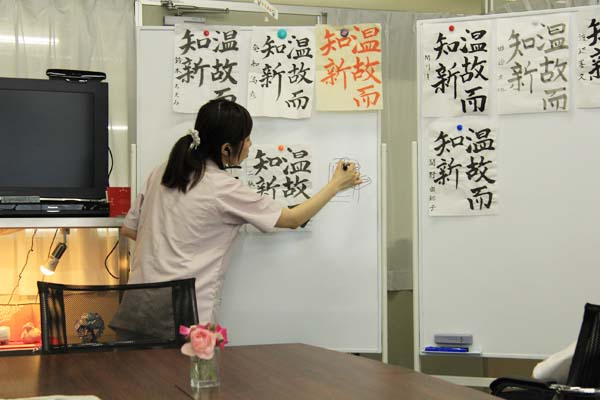 温故而
知新
鈴木ちえみ
温故而
知新
温故而
知新
温故
知新
温故而
知新
温故而
知新
温故而
知新